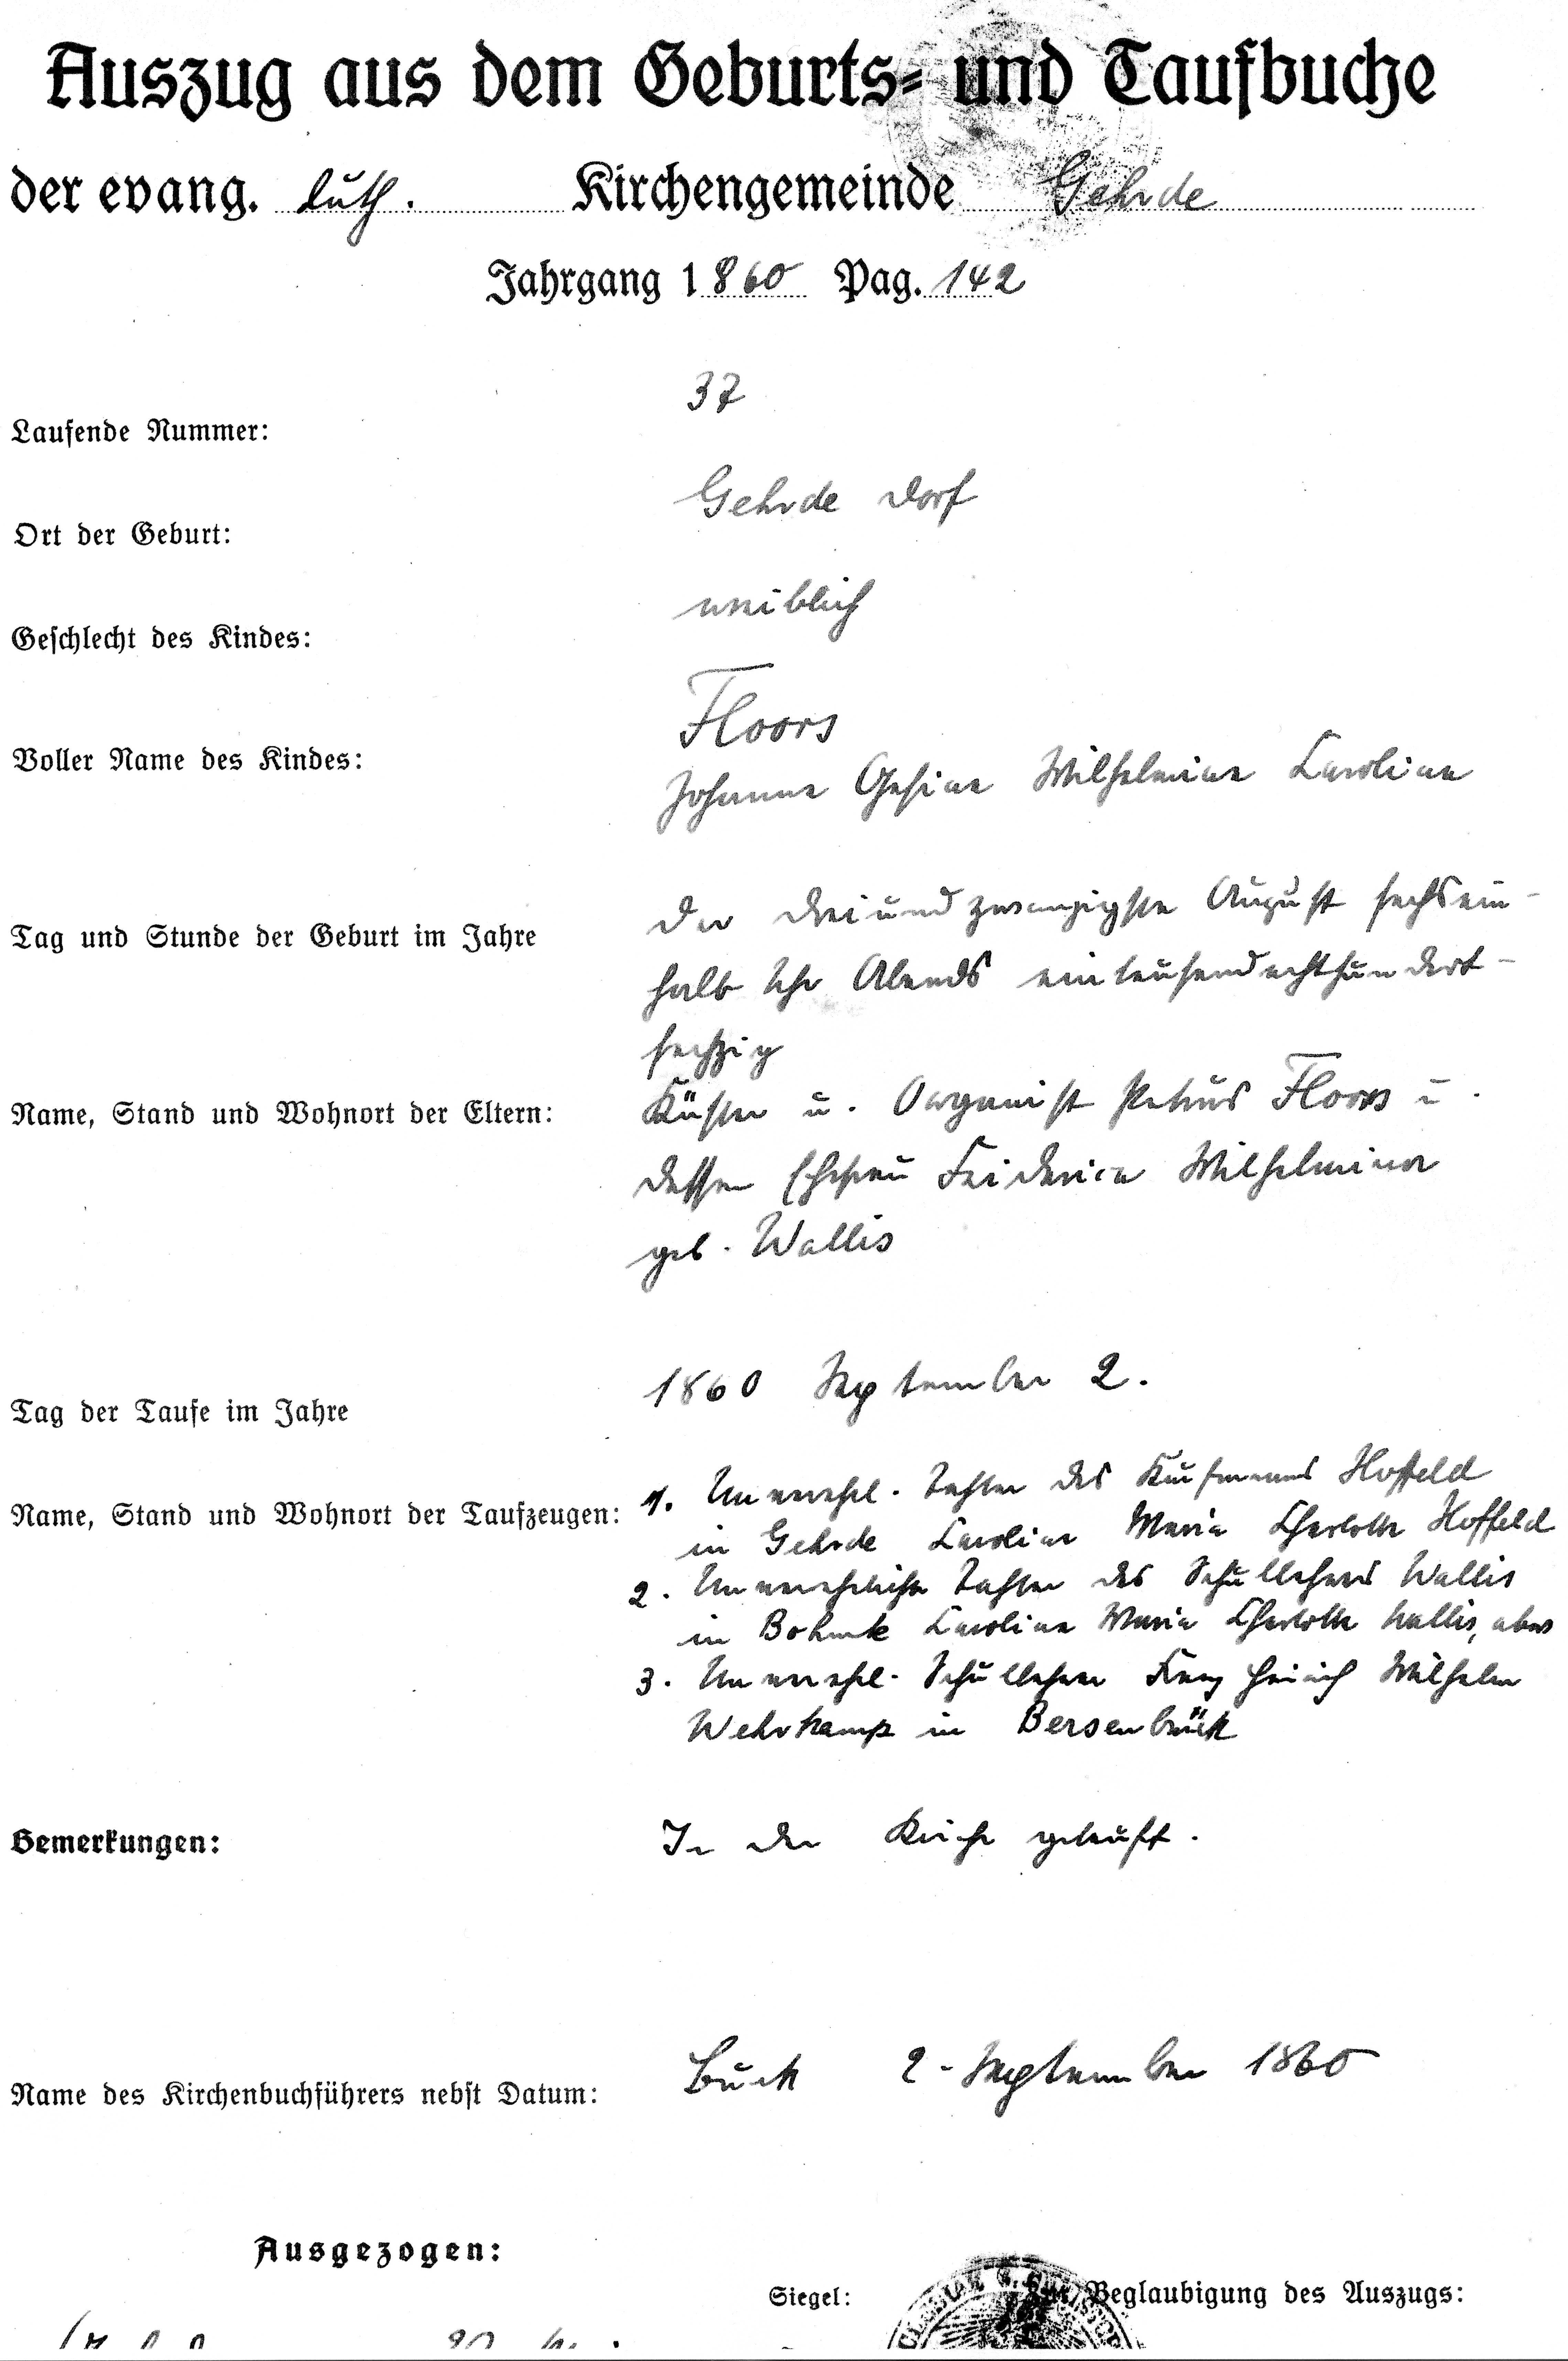 Auszug aus dem Geburts- und Taufbuche
der evang. luth. Kirchengemeinde Gehrde
Jahrgang 1860 Pag. 142
37
Laufende Nummer:
Gehrde Dorf
Ort der Geburt:
weiblich
Geschlecht des Kindes:
Floors
Voller Name des Kindes:
Johanne Gesine Wilhelmine Caroline
Der dreiundzwanzigste August sechsein-
Tag und Stunde der Geburt im Jahre
halb Uhr Abends eintausendachthundert-
sechzig
Name, Stand und Wohnort der Eltern: Küster u. Organist Petrus Floors u.
dessen Ehefrau Friderica Wilhelmina
geb. Wallis
1860 September 2.
Tag der Taufe im Jahre
1. Unverehel. Tochter des Kaufmanns Hoffeld
Name, Stand und Wohnort der Taufzeugen:
in Gehrde Caroline Maria Charlotte Hoffeld
2. Unverehelichte Tochter des Schullehrers Wallis
in Caroline Maria Charlotte Wallis,
3. Unverehel. Schullehrer Franz Heinrich Wilhelm
Wehrkamp in Bersenbrück
Bemerkungen: In der Kirche getauft.
Buck 2. September 1860
Name des Kirchenbuchführers nebst Datum:
Ausgezogen:
Siegel: Beglaubigung des Auszugs: